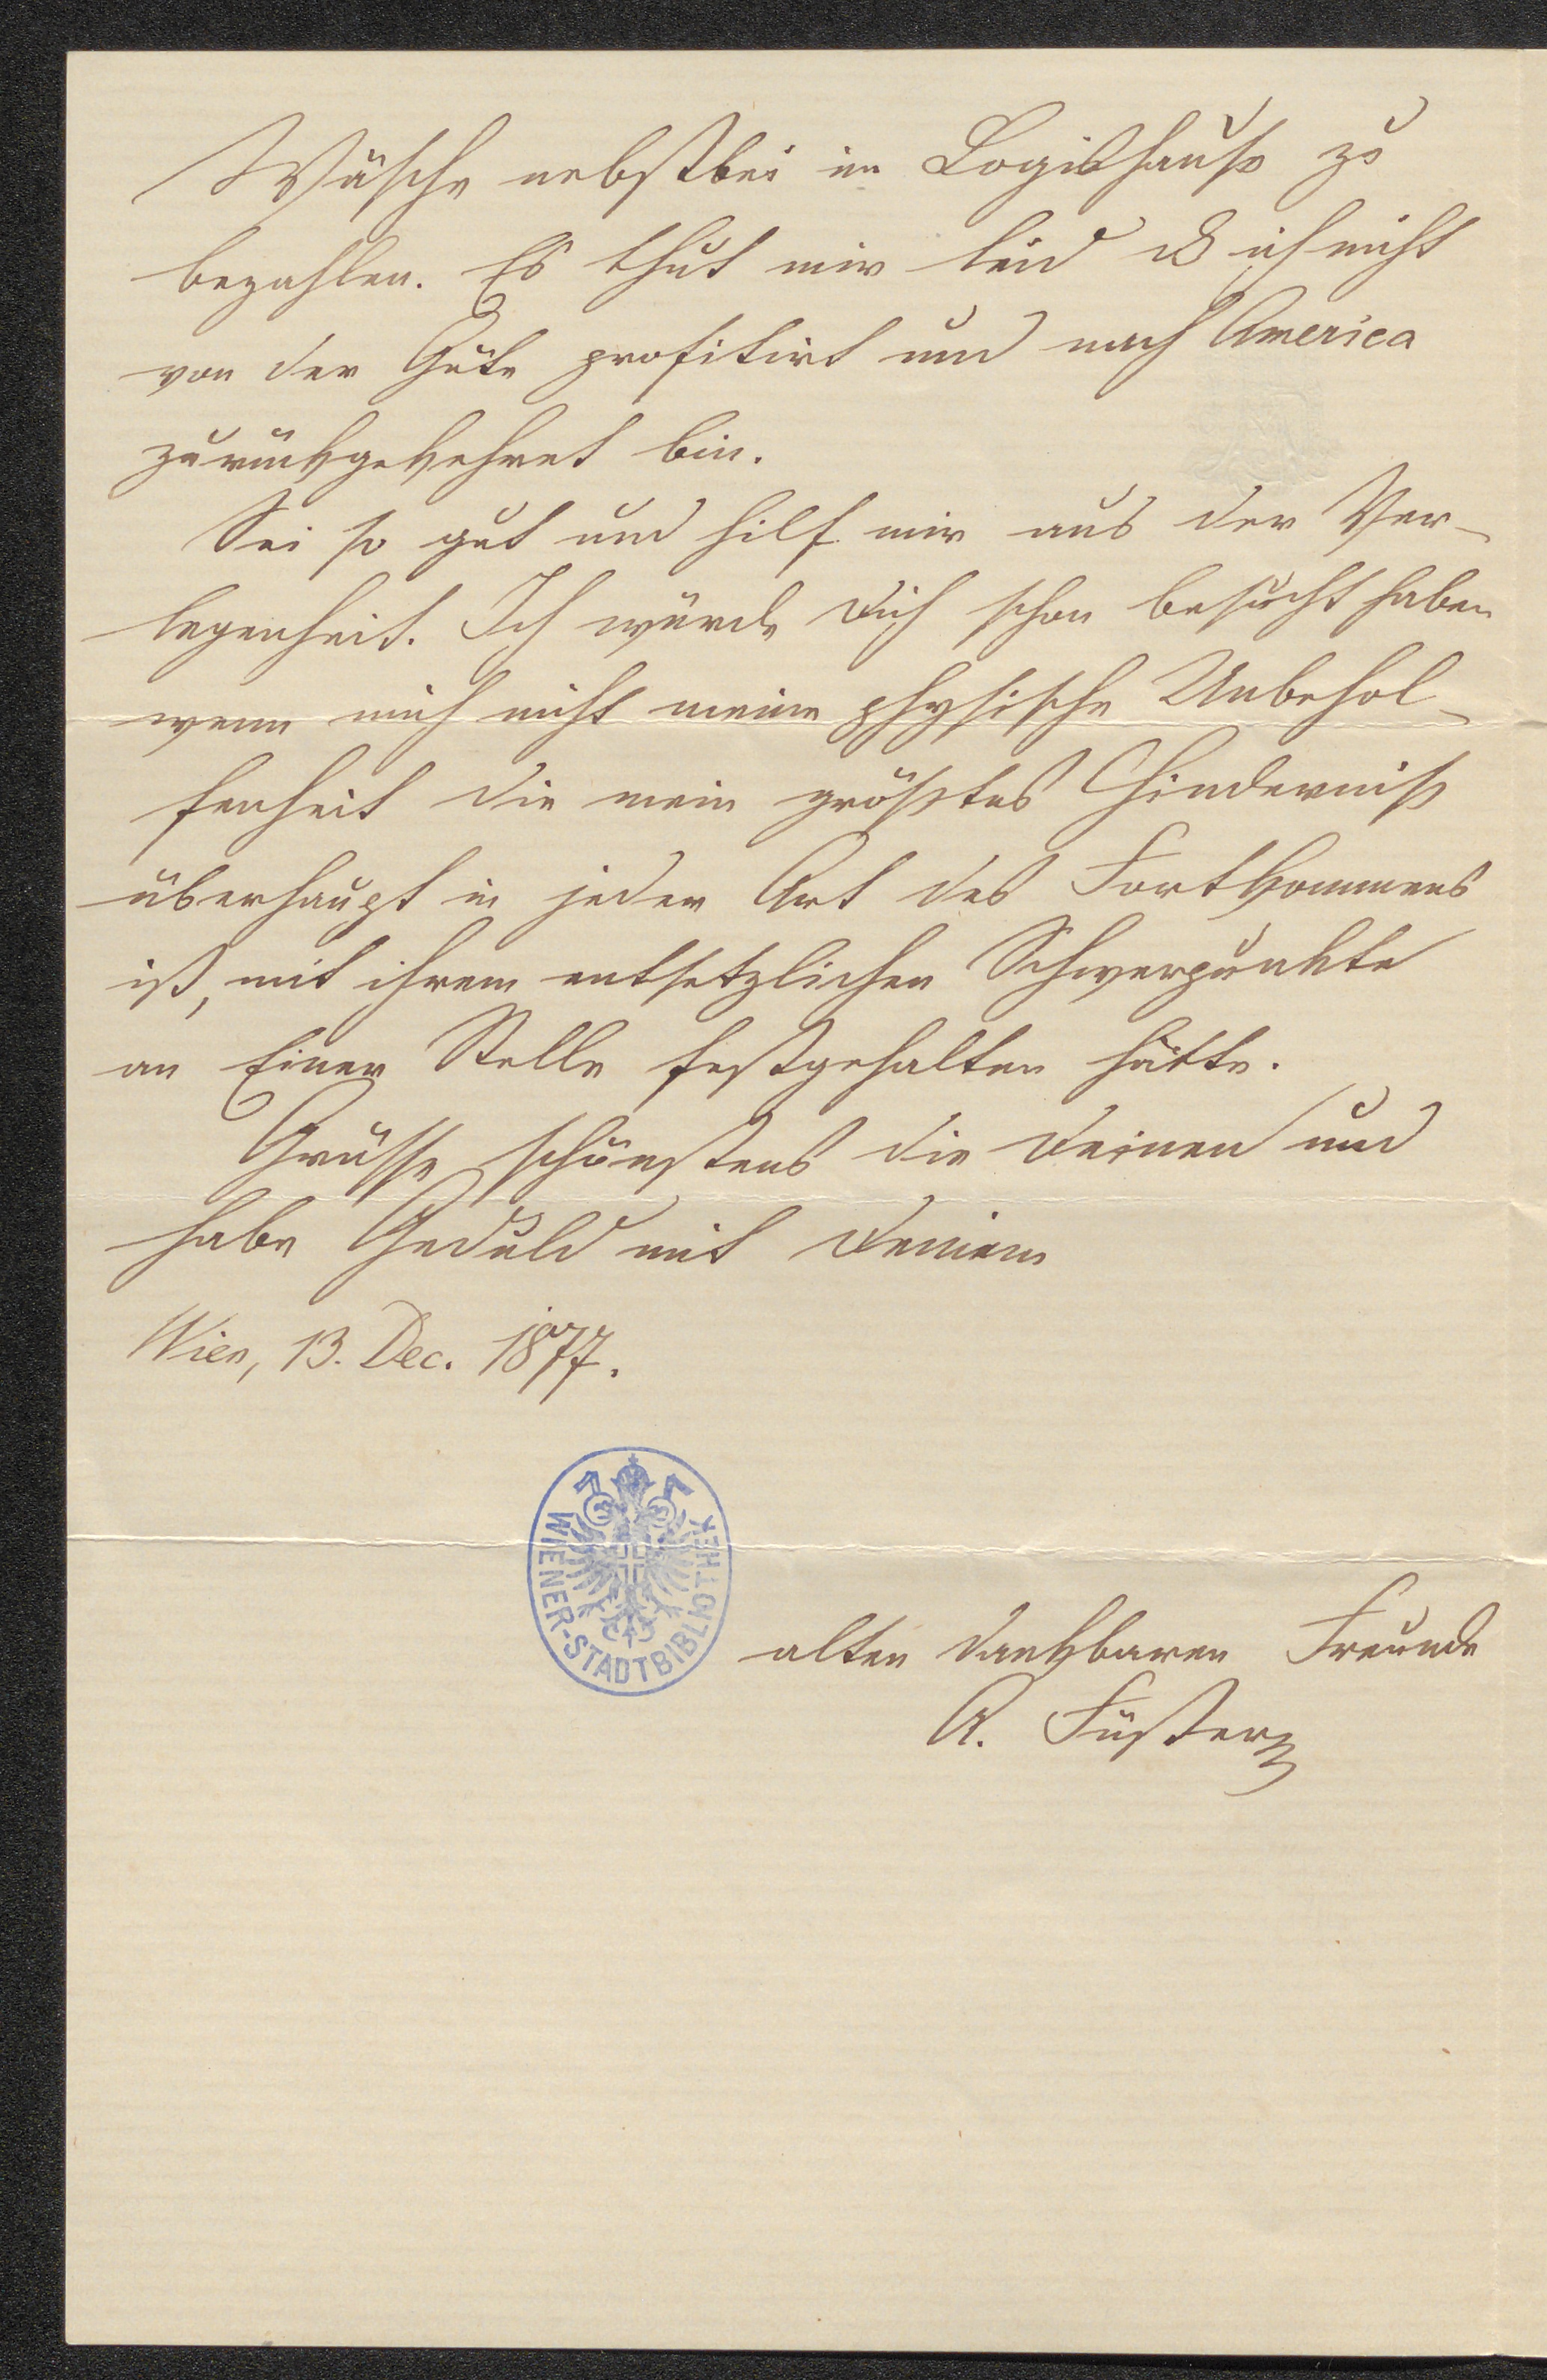 Wäsche nebstbei im Logishause zu
bezahlen. Es thut mir leid dß ich nicht
von der Güte profitirt und nach America
zurückgekehret bin.
Sei so gut und hilf mir aus der Ver-
legenheit. Ich würde dich schon besucht haben
wenn mich nicht meine physische Unbehol-
fenheit die mein größtes Hinderniß
überhaupt in jeder Art des Fortkommens
ist, mit ihrem entsetzlichen Schwerpunkte
an Einer Stelle festgehalten hätte.
Grüsse schönstens die Deinen und
habe Geduld mit Deinem
Wien, 13. Dec. 1877.
WIENER-STADTBIBLIOTHEK
alten dankbaren Freunde
A. Füster